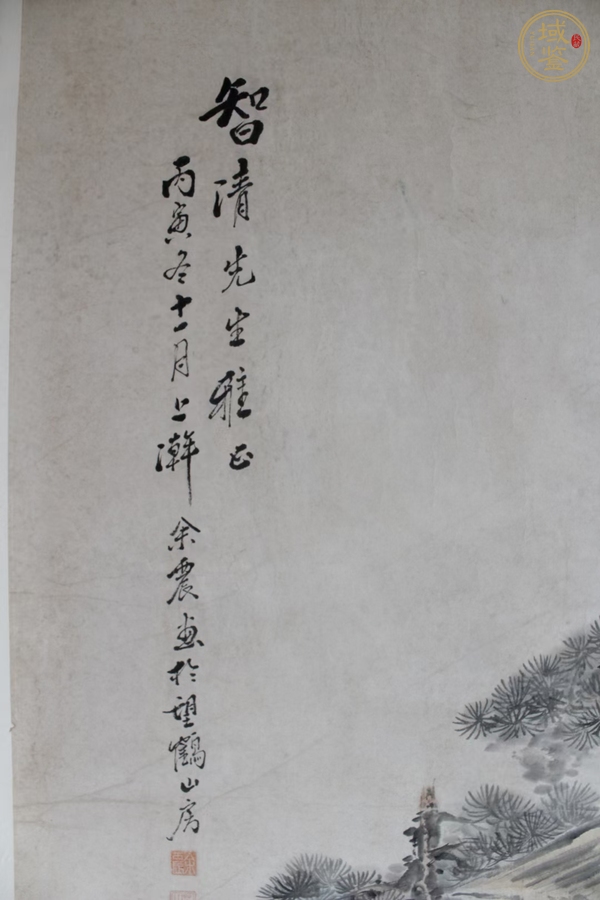 智清先生雅正
丙寅冬十一月上澣 余震画於望鶴山房
域鉴